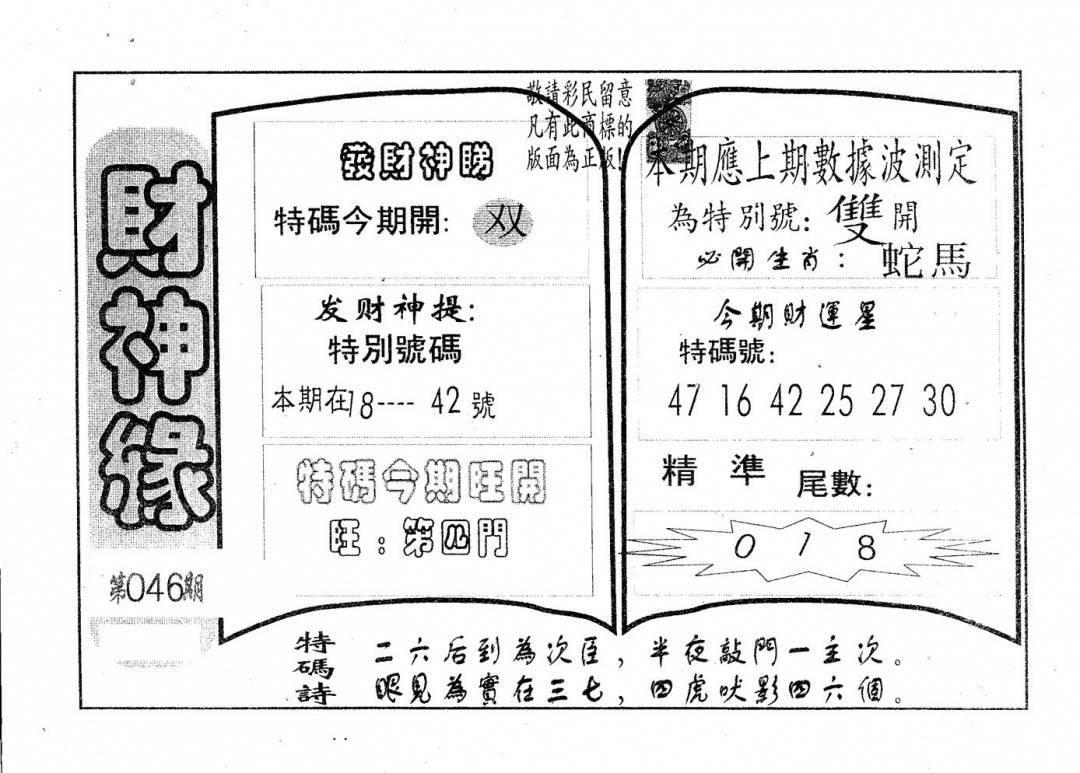 財神緣
第046期
敬請彩民留意
凡有此商標的
版面為正版!
發財神睇
特碼今期開: 双
发财神提:
特別號碼
本期在18---- 42號
特碼今期旺開
旺:第四門
本期應上期數據波測定
為特別號: 雙開
必開生肖: 蛇馬
今期財運星
特碼號:
47 16 42 25 27 30
精準 尾數:
0 1 8
特碼詩
二六后到為次臣,半夜敲門一主次。
眼見為實在三七,四虎吠影四六個。